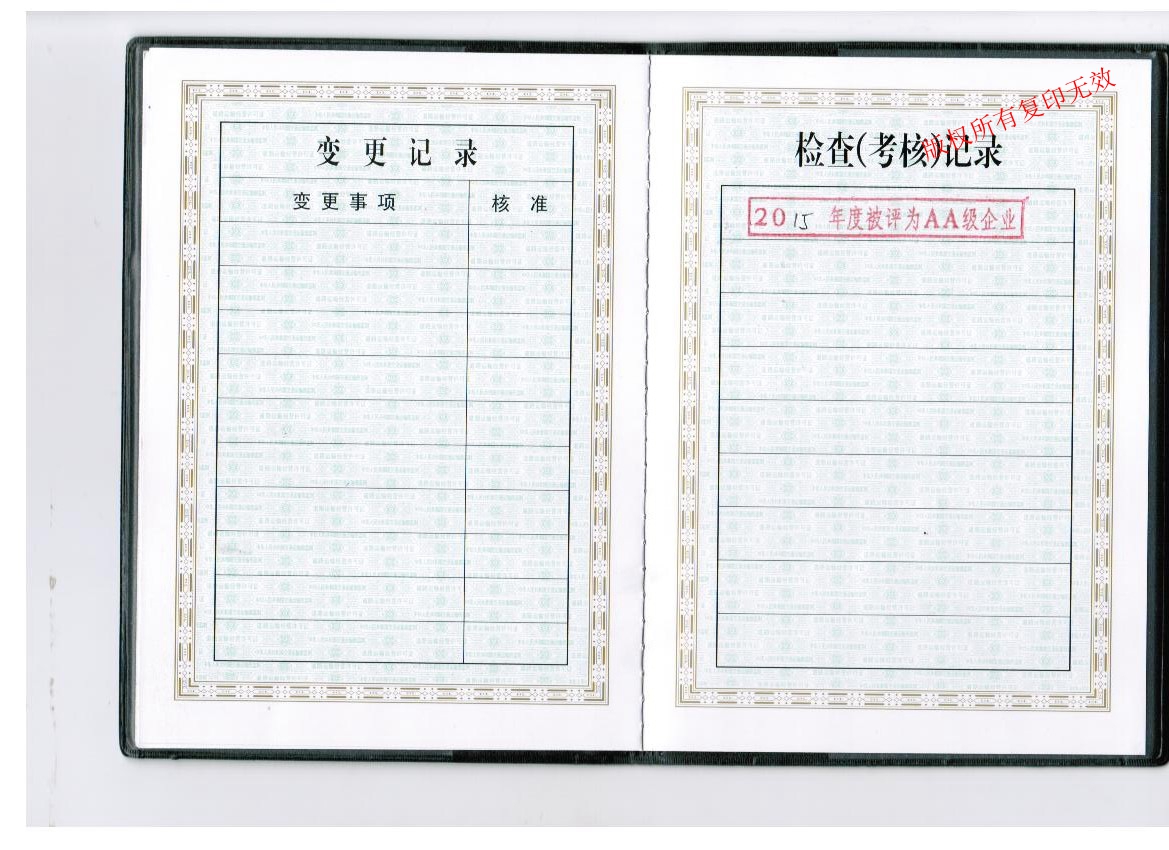 变更记录
变更事项 核准
检查(考核)记录
版权所有复印无效
2015 年度被评为AA级企业